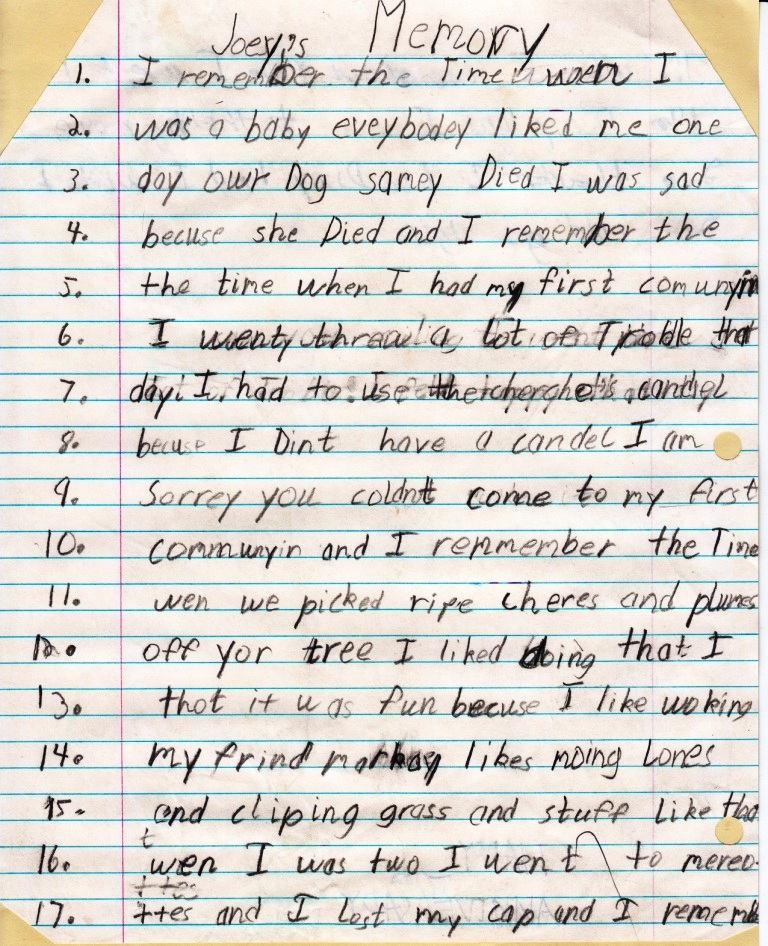 Joey's Memory
1. I remember the Time wen I
2. was a baby eveybodey liked me one
3. day owr Dog samey Died I was sad
4. becuse she Died and I remember the
5. the time when I had my first comunyin
6. I wenty threw a lot of Trooble that
7. day I had to use the candel
8. becuse I Dint have a candel I am
9. Sorrey you coldnt come to my first
10. communyin and I remmember the Time
11. wen we picked ripe cheres and plumes
12. off yor tree I liked doing that I
13. thot it was fun becuse I like woking
14. my frind markay likes moing Lones
15. and cliping grass and stuff like that
16. wen I was two I went to mereo-
17. ttes and I Lost my cap and I rememb